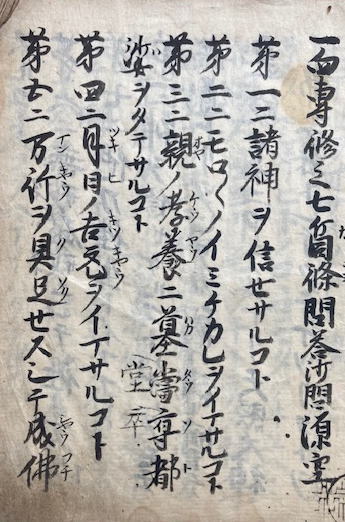 一向専修之七箇條問答沙門源空
第一ニ諸神ヲ信セサルコト
第二ニモロ〱ノイミヲイマサルコト
第三ニ親ノ孝養ニ墓當尊都
堂卒
婆ヲタテサルコト
第四ニ月日ノ吉凶ヲイマサルコト
第五ニ万行ヲ具足セスシテ成佛